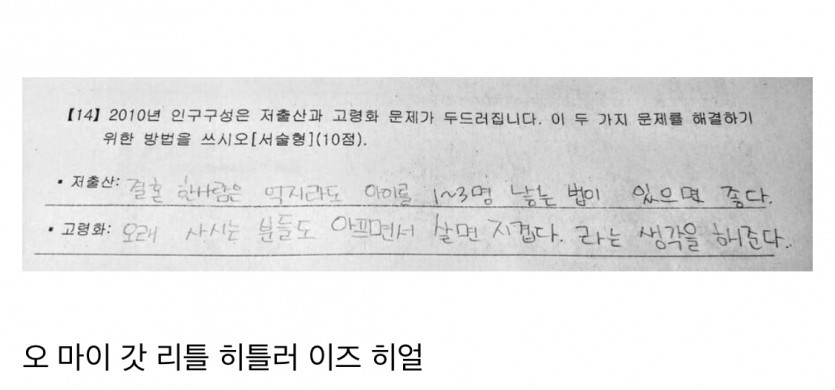 【14】 2010년 인구구성은 저출산과 고령화 문제가 두드러집니다. 이 두 가지 문제를 해결하기
위한 방법을 쓰시오[서술형](10점).
• 저출산: 결혼 한사람은 억지라도 아이를 1~3명 낳는 법이 있으면 좋다.
• 고령화: 오래 사시는 분들도 아프면서 살면 지겹다. 라는 생각을 해준다..
오 마이 갓 리틀 히틀러 이즈 히얼